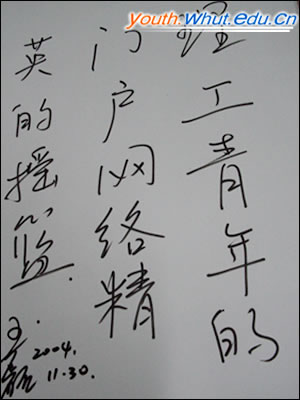 youth.Whut.edu.Cn
理工青年的
门户网络精
英的摇篮.
王
2004.
11.30.